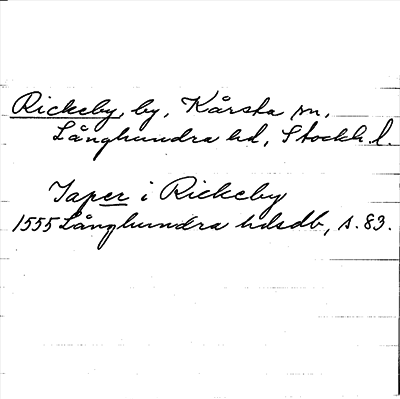 Rickeby, by, Kårsta sn,
Långhundra hd, Stockh. l.
Japer i Rickeby
1555 Långhundra hdsdb, s. 83.